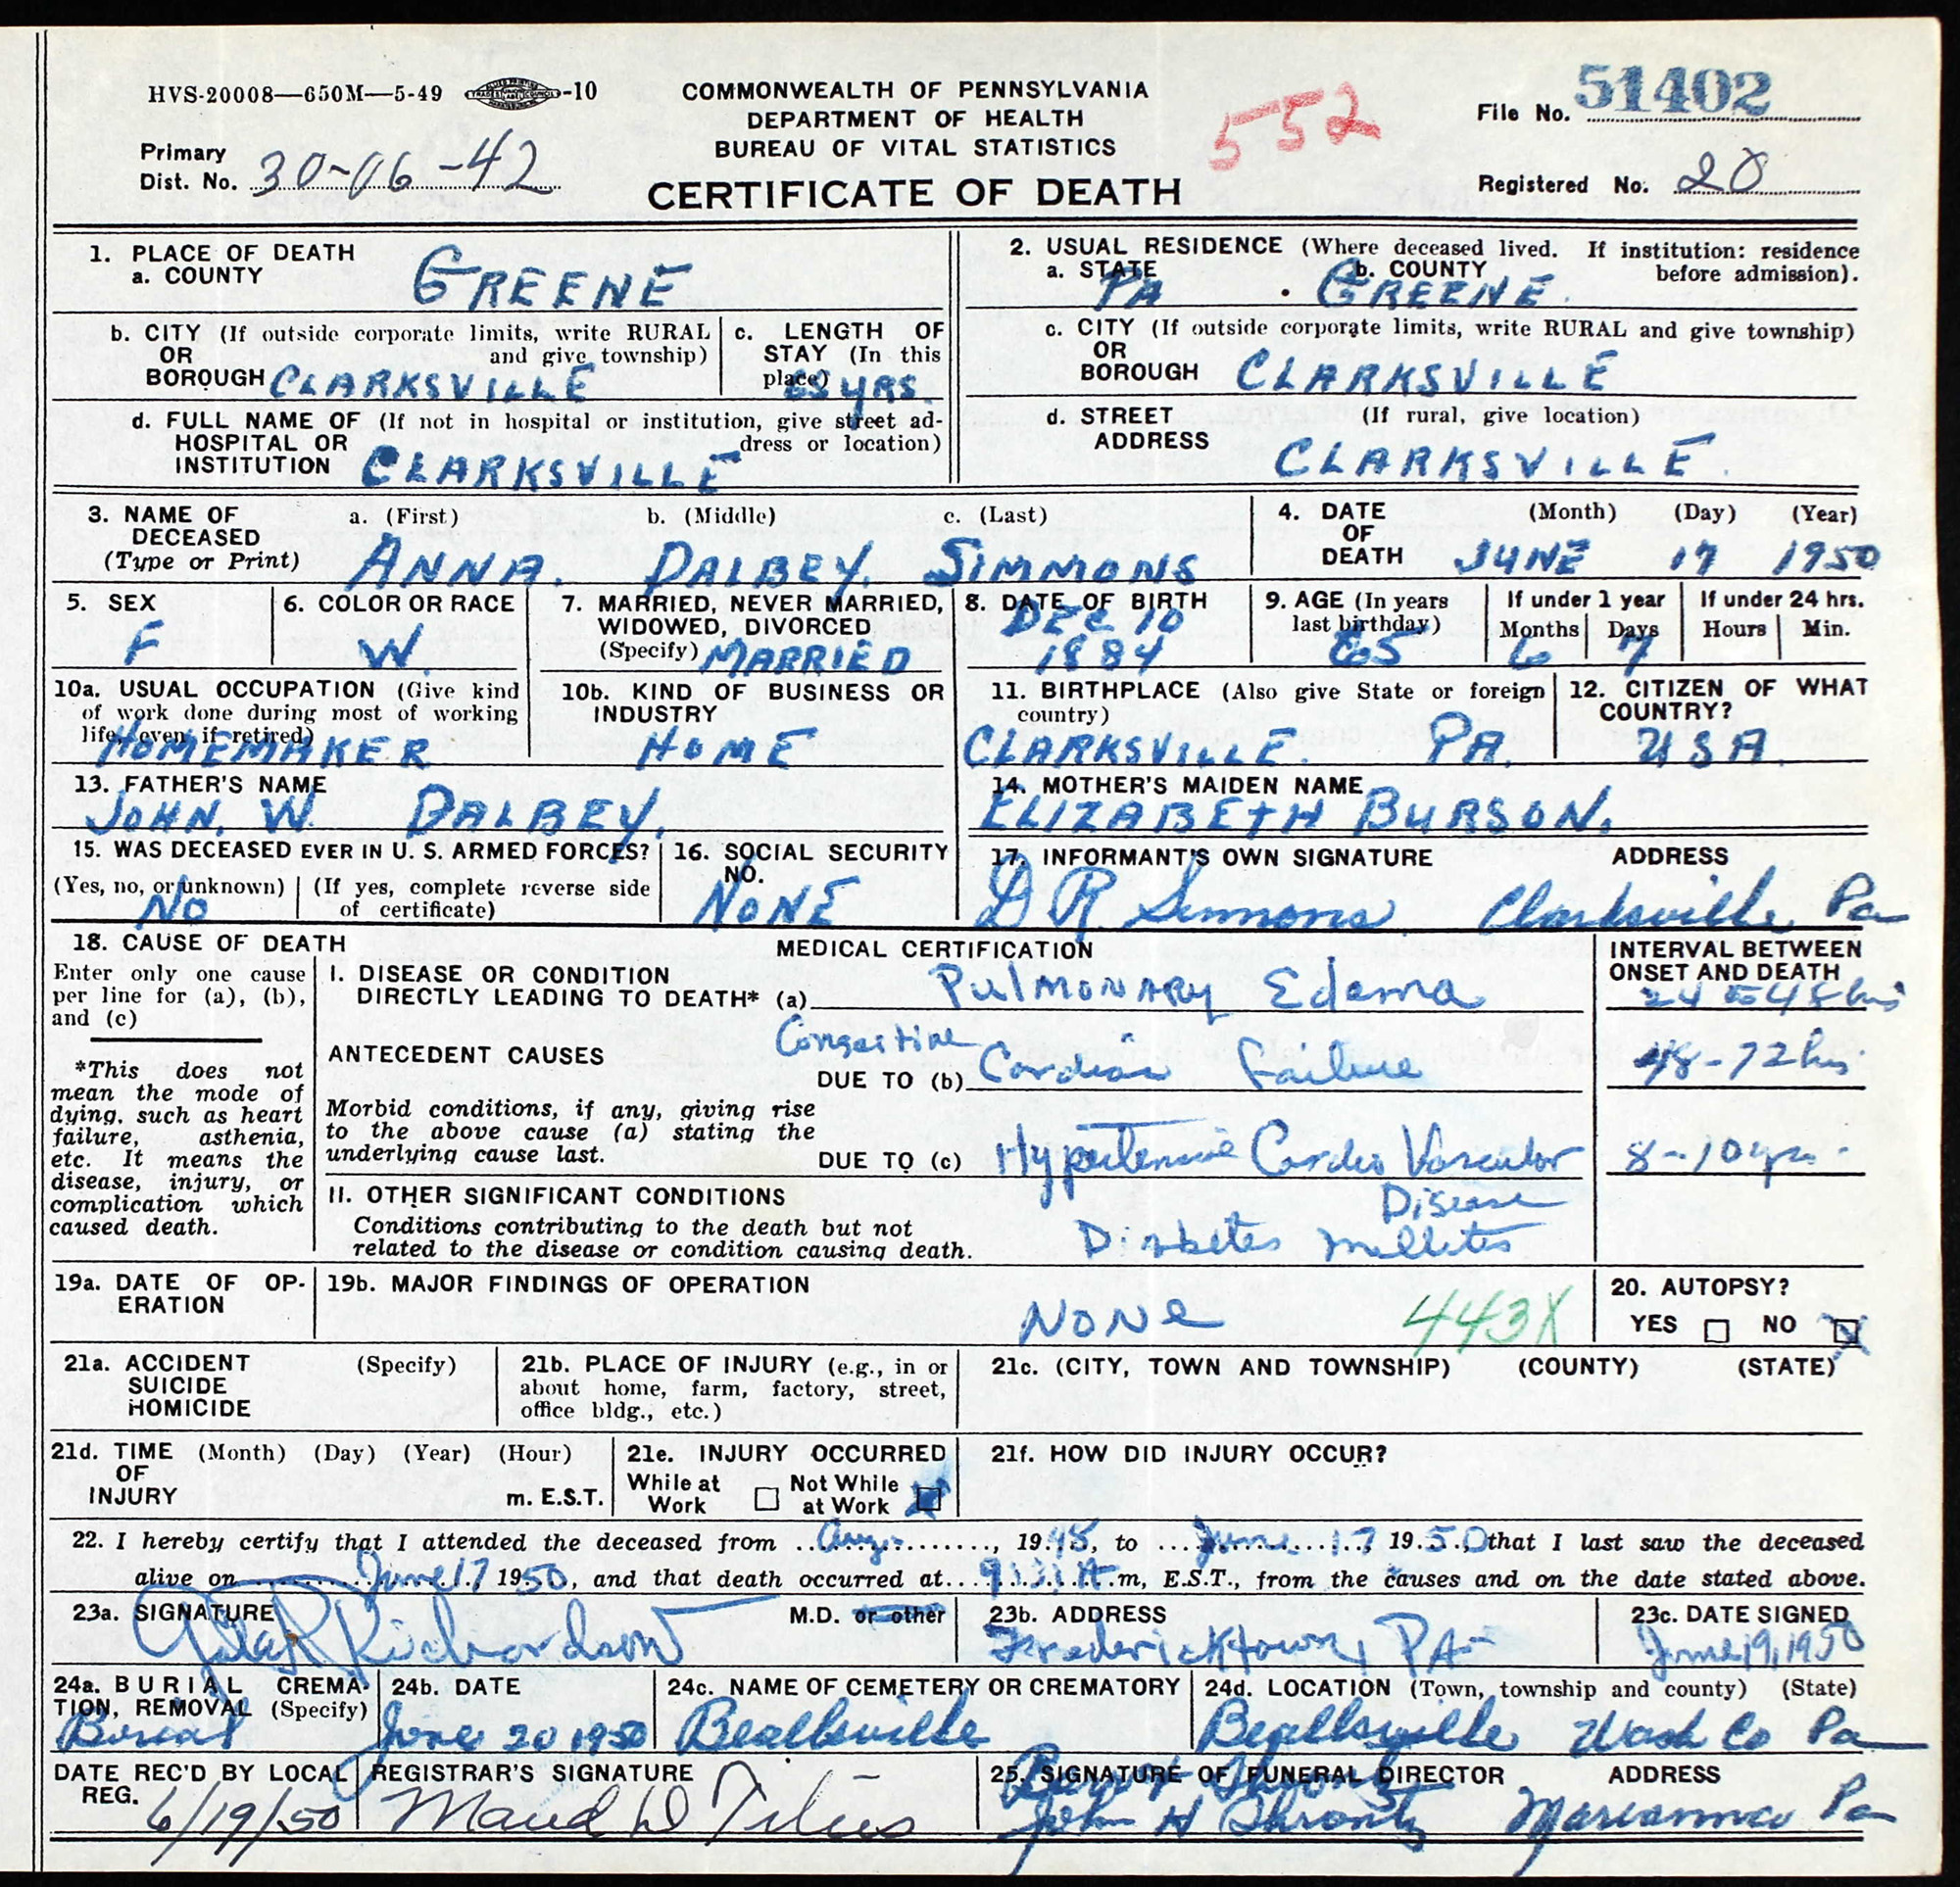 HVS-20008—650M—5-49 -10
COMMONWEALTH OF PENNSYLVANIA
DEPARTMENT OF HEALTH
BUREAU OF VITAL STATISTICS
CERTIFICATE OF DEATH
552
File No. 51402
Primary
Dist. No. 30-06-42
Registered No. 20
1. PLACE OF DEATH
a. COUNTY GREENE
b. CITY (If outside corporate limits, write RURAL
OR and give township)
BOROUGH CLARKSVILLE
c. LENGTH OF
STAY (In this
place) 65 YRS.
d. FULL NAME OF (If not in hospital or institution, give street ad-
HOSPITAL OR dress or location)
INSTITUTION CLARKSVILLE
2. USUAL RESIDENCE (Where deceased lived. If institution: residence
a. STATE b. COUNTY before admission).
PA. GREENE.
c. CITY (If outside corporate limits, write RURAL and give township)
OR
BOROUGH CLARKSVILLE
d. STREET (If rural, give location)
ADDRESS
CLARKSVILLE.
3. NAME OF a. (First) b. (Middle) c. (Last)
DECEASED
(Type or Print) ANNA. DALBEY. SIMMONS
4. DATE (Month) (Day) (Year)
OF
DEATH JUNE 17 1950
5. SEX
F
6. COLOR OR RACE
W.
7. MARRIED, NEVER MARRIED,
WIDOWED, DIVORCED
(Specify) MARRIED
8. DATE OF BIRTH
DEC 10
1884
9. AGE (In years
last birthday)
65
If under 1 year
Months Days
6 7
If under 24 hrs.
Hours Min.
10a. USUAL OCCUPATION (Give kind
of work done during most of working
life, even if retired)
HOMEMAKER
10b. KIND OF BUSINESS OR
INDUSTRY
HOME
11. BIRTHPLACE (Also give State or foreign
country)
CLARKSVILLE. PA.
12. CITIZEN OF WHAT
COUNTRY?
USA.
13. FATHER'S NAME
JOHN. W. DALBEY.
14. MOTHER'S MAIDEN NAME
ELIZABETH BURSON.
15. WAS DECEASED EVER IN U. S. ARMED FORCES?
(Yes, no, or unknown) (If yes, complete reverse side
of certificate)
No
16. SOCIAL SECURITY
NO.
NONE
17. INFORMANT'S OWN SIGNATURE ADDRESS
D R Simmons Clarksville Pa
18. CAUSE OF DEATH
Enter only one cause
per line for (a), (b),
and (c)
*This does not
mean the mode of
dying, such as heart
failure, asthenia,
etc. It means the
disease, injury, or
complication which
caused death.
MEDICAL CERTIFICATION
INTERVAL BETWEEN
ONSET AND DEATH
I. DISEASE OR CONDITION
DIRECTLY LEADING TO DEATH* (a) Pulmonary Edema
24 to 48 hrs
ANTECEDENT CAUSES
Congestive
DUE TO (b) Cardiac Failure
48-72 hrs
Morbid conditions, if any, giving rise
to the above cause (a) stating the
underlying cause last.
DUE TO (c) Hypertensive Cardio Vascular
Disease
8-10 yrs.
II. OTHER SIGNIFICANT CONDITIONS
Conditions contributing to the death but not
related to the disease or condition causing death.
Diabetes Mellitus
19a. DATE OF OP-
ERATION
19b. MAJOR FINDINGS OF OPERATION
None 443X
20. AUTOPSY?
YES NO X
21a. ACCIDENT (Specify)
SUICIDE
HOMICIDE
21b. PLACE OF INJURY (e.g., in or
about home, farm, factory, street,
office bldg., etc.)
21c. (CITY, TOWN AND TOWNSHIP) (COUNTY) (STATE)
21d. TIME (Month) (Day) (Year) (Hour)
OF
INJURY m. E.S.T.
21e. INJURY OCCURRED
While at Not While
Work at Work
21f. HOW DID INJURY OCCUR?
22. I hereby certify that I attended the deceased from Aug., 1948, to June 17 1950, that I last saw the deceased
alive on June 17 1950, and that death occurred at m, E.S.T., from the causes and on the date stated above.
23a. SIGNATURE M.D. or other
Richardson
23b. ADDRESS
Fredericktown, PA-
23c. DATE SIGNED
June 19, 1950
24a. BURIAL CREMA-
TION, REMOVAL (Specify)
Burial
24b. DATE
June 20 1950
24c. NAME OF CEMETERY OR CREMATORY
Beallsville
24d. LOCATION (Town, township and county) (State)
Beallsville Wash Co Pa
DATE REC'D BY LOCAL
REG.
6/19/50
REGISTRAR'S SIGNATURE
Maud D
25. SIGNATURE OF FUNERAL DIRECTOR ADDRESS
John H Shrontz Marianna Pa